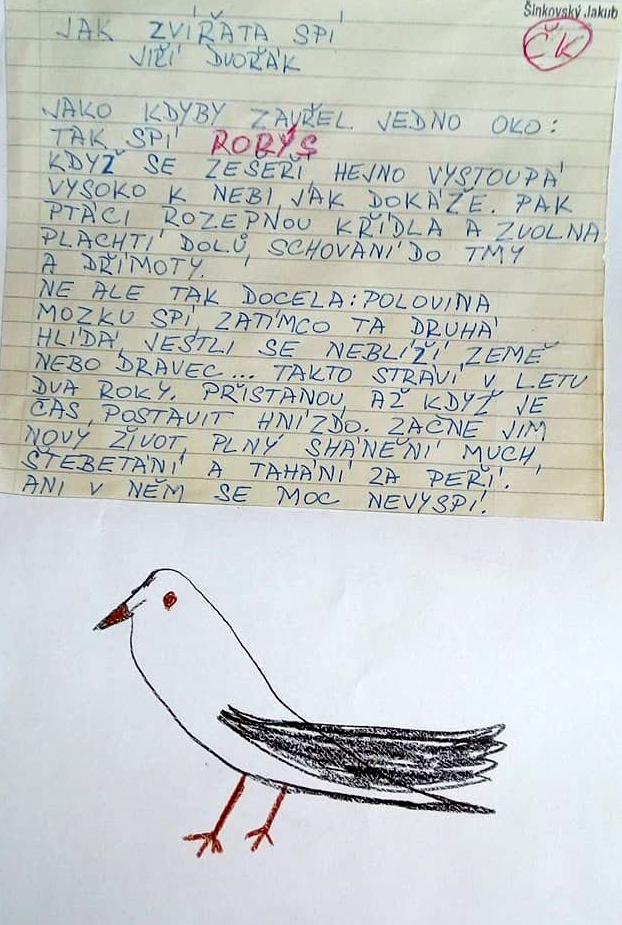 Šinkovský Jakub
ČK
JAK ZVÍŘATA SPÍ
JIŘÍ DVOŘÁK
JAKO KDYBY ZAVŘEL JEDNO OKO:
TAK SPÍ RORÝS
KDYŽ SE ZEŠEŘÍ HEJNO VYSTOUPÁ
VYSOKO K NEBI, JAK DOKÁŽE. PAK
PTÁCI ROZEPNOU KŘÍDLA A ZVOLNA
PLACHTÍ DOLŮ, SCHOVANÍ DO TMY
A DŘÍMOTY.
NE ALE TAK DOCELA: POLOVINA
MOZKU SPÍ, ZATÍMCO TA DRUHÁ
HLÍDÁ, JESTLI SE NEBLÍŽÍ ZEMĚ
NEBO DRAVEC... TAKTO STRÁVÍ V LETU
DVA ROKY. PŘISTANOU, AŽ KDYŽ JE
ČAS POSTAVIT HNÍZDO. ZAČNE JIM
NOVÝ ŽIVOT, PLNÝ SHÁNĚNÍ MUCH,
ŠTEBETÁNÍ A TAHÁNÍ ZA PEŘÍ.
ANI V NĚM SE MOC NEVYSPÍ.